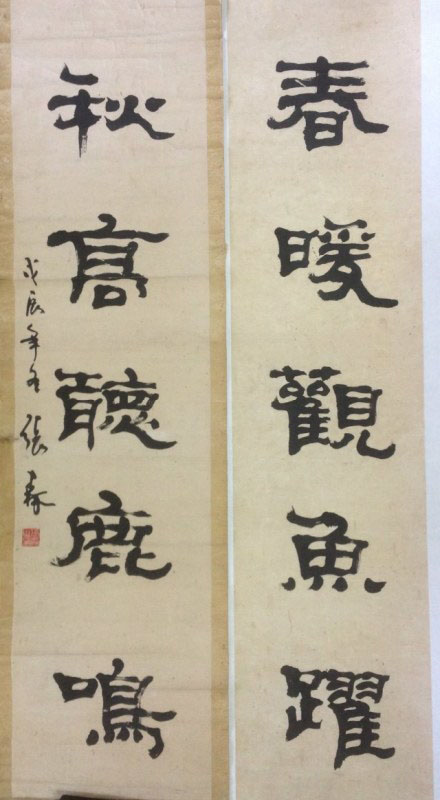 春暖觀魚躍
秋高聽鹿鳴
戊辰年冬 張春